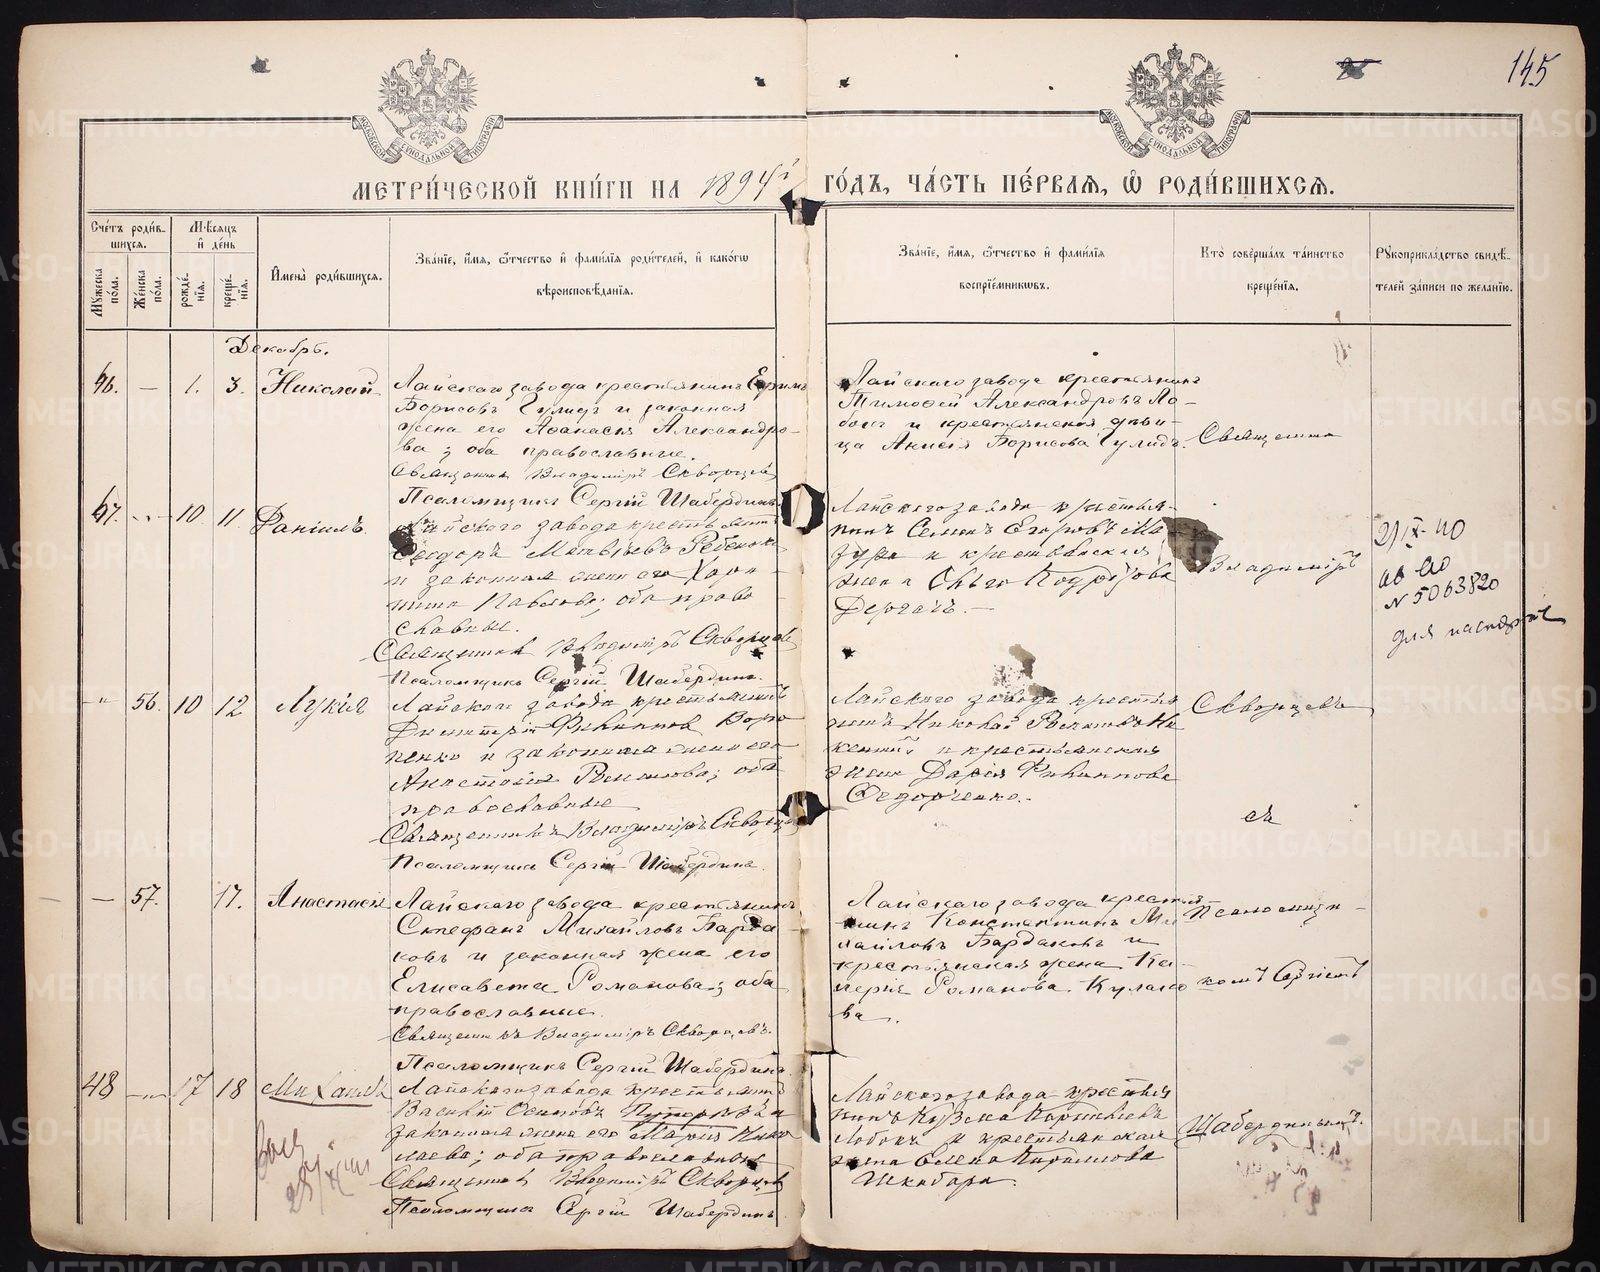 145
МЕТРИ́ЧЕСКОЙ КНИ́ГИ НА 1894й ГО́ДЪ, ЧА́СТЬ ПЕ́РВАЯ, Ѡ РОДИ́ВШИХСЯ.
Сче́тъ роди́в-
шихся.
Мꙋжеска по́ла.
Же́нска по́ла.
Мѣсяцъ и де́нь
рожде́нїя.
креще́нїя.
Имена̀ роди́вшихся.
Зва́нїе, и́мя, ѻ҆́тчество и фами́лїя роди́телей, и како́гѡ
вѣроисповѣ́данїя.
Зва́нїе, и́мя, ѻ҆́тчество и фами́лїя
воспрїе́мникѡвъ.
Кто̀ соверша́лъ та́инство
креще́нїя.
Рꙋкоприкла́дство свидѣ́-
телей за́писи по жела́нїю.
Декабрь.
46. — 1. 3. Николай
Лайскаго завода крестьянинъ Ефимъ
Борисовъ Гулидъ и законная
жена его Афанасія Александро-
ва; оба православные.
Священникъ Владиміръ Скворцевъ
Псаломщикъ Сергій Шабердинъ
Лайскаго завода крестьянинъ
Тимофей Александровъ Ло-
бокъ и крестьянская дѣви-
ца Анисія Борисова Гулидъ.
Священни
47. 10 11 Даніилъ
Лайскаго завода крестьянинъ
Феодоръ Матвѣевъ
и законная жена его Хари-
тина Павлова; оба право-
славные.
Священникъ Владиміръ Скворцовъ
Псаломщикъ Сергій Шабердинъ
Лайскаго завода крестья-
нинъ Семенъ Егоровъ Ма-
зура и крестьянская
жена Ольга
Дергачъ. —
Владиміръ
21 IX-40
№ 5063820
для паспорта
56. 10 12 Лукія
Лайскаго завода крестьянинъ
Димитрій Филиповъ Воро-
ненко и законная жена его
Анастасія; оба
православные
Священникъ Владиміръ Скворцовъ
Псаломщикъ Сергій Шабердинъ
Лайскаго завода крестья-
нинъ Николай
и крестьянская
жена Дарія Филиппова
Федорченко.
Скворцевъ
съ
— 57. 17. Анастасія
Лайскаго завода крестьянинъ
Стефанъ Михайловъ Барда-
ковъ и законная жена его
Елисавета Романова; оба
православные.
Священникъ Владиміръ Скворцевъ.
Псаломщикъ Сергій Шабердинъ.
Лайскаго завода крестья-
нинъ Константинъ Ми-
хайловъ Бардаковъ и
крестьянская жена Ка-
лерія Романова Кулако-
ва.
Псаломщи-
комъ Сергіемъ
48 17 18 Михаилъ
Лайскаго завода крестьянинъ
Василій Осиповъ и
законная жена его Марія Нико-
лаева; оба православные
Священникъ Владиміръ Скворцовъ
Псаломщикъ Сергій Шабердинъ
Лайскаго завода крестья-
нинъ Кузьма Корнильевъ
Лобокъ и крестьянская
жена Елена Кирилова
Шкабара.
Шабердинымъ.